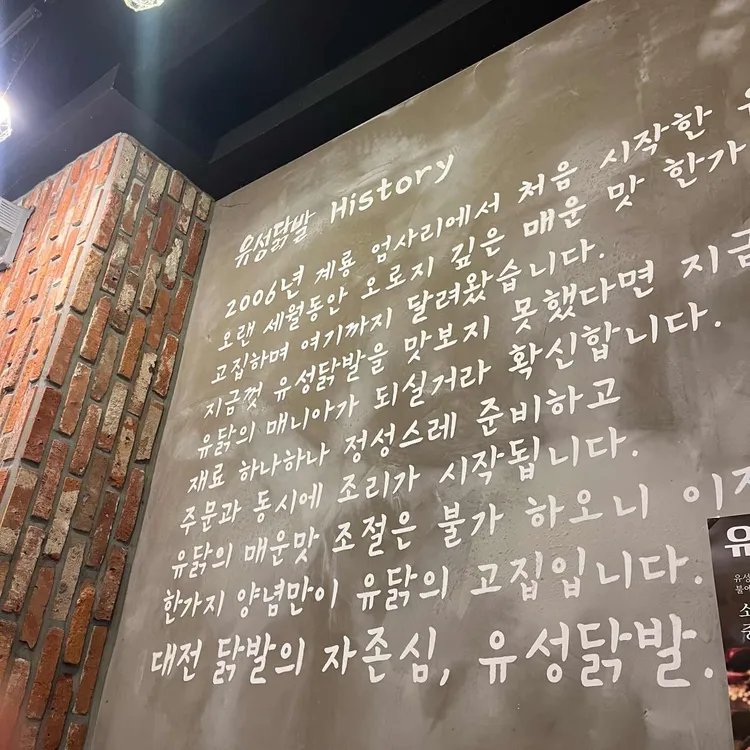 유성닭발 History
2006년 계룡 엄사리에서 처음 시작한
오랜 세월동안 오로지 깊은 매운 맛 한가
고집하며 여기까지 달려왔습니다.
지금껏 유성닭발을 맛보지 못했다면 지금
유닭의 매니아가 되실거라 확신합니다.
재료 하나하나 정성스레 준비하고
주문과 동시에 조리가 시작됩니다.
유닭의 매운맛 조절은 불가 하오니 이
한가지 양념만이 유닭의 고집입니다.
대전 닭발의 자존심, 유성닭발.
유
유성
불에
소
중